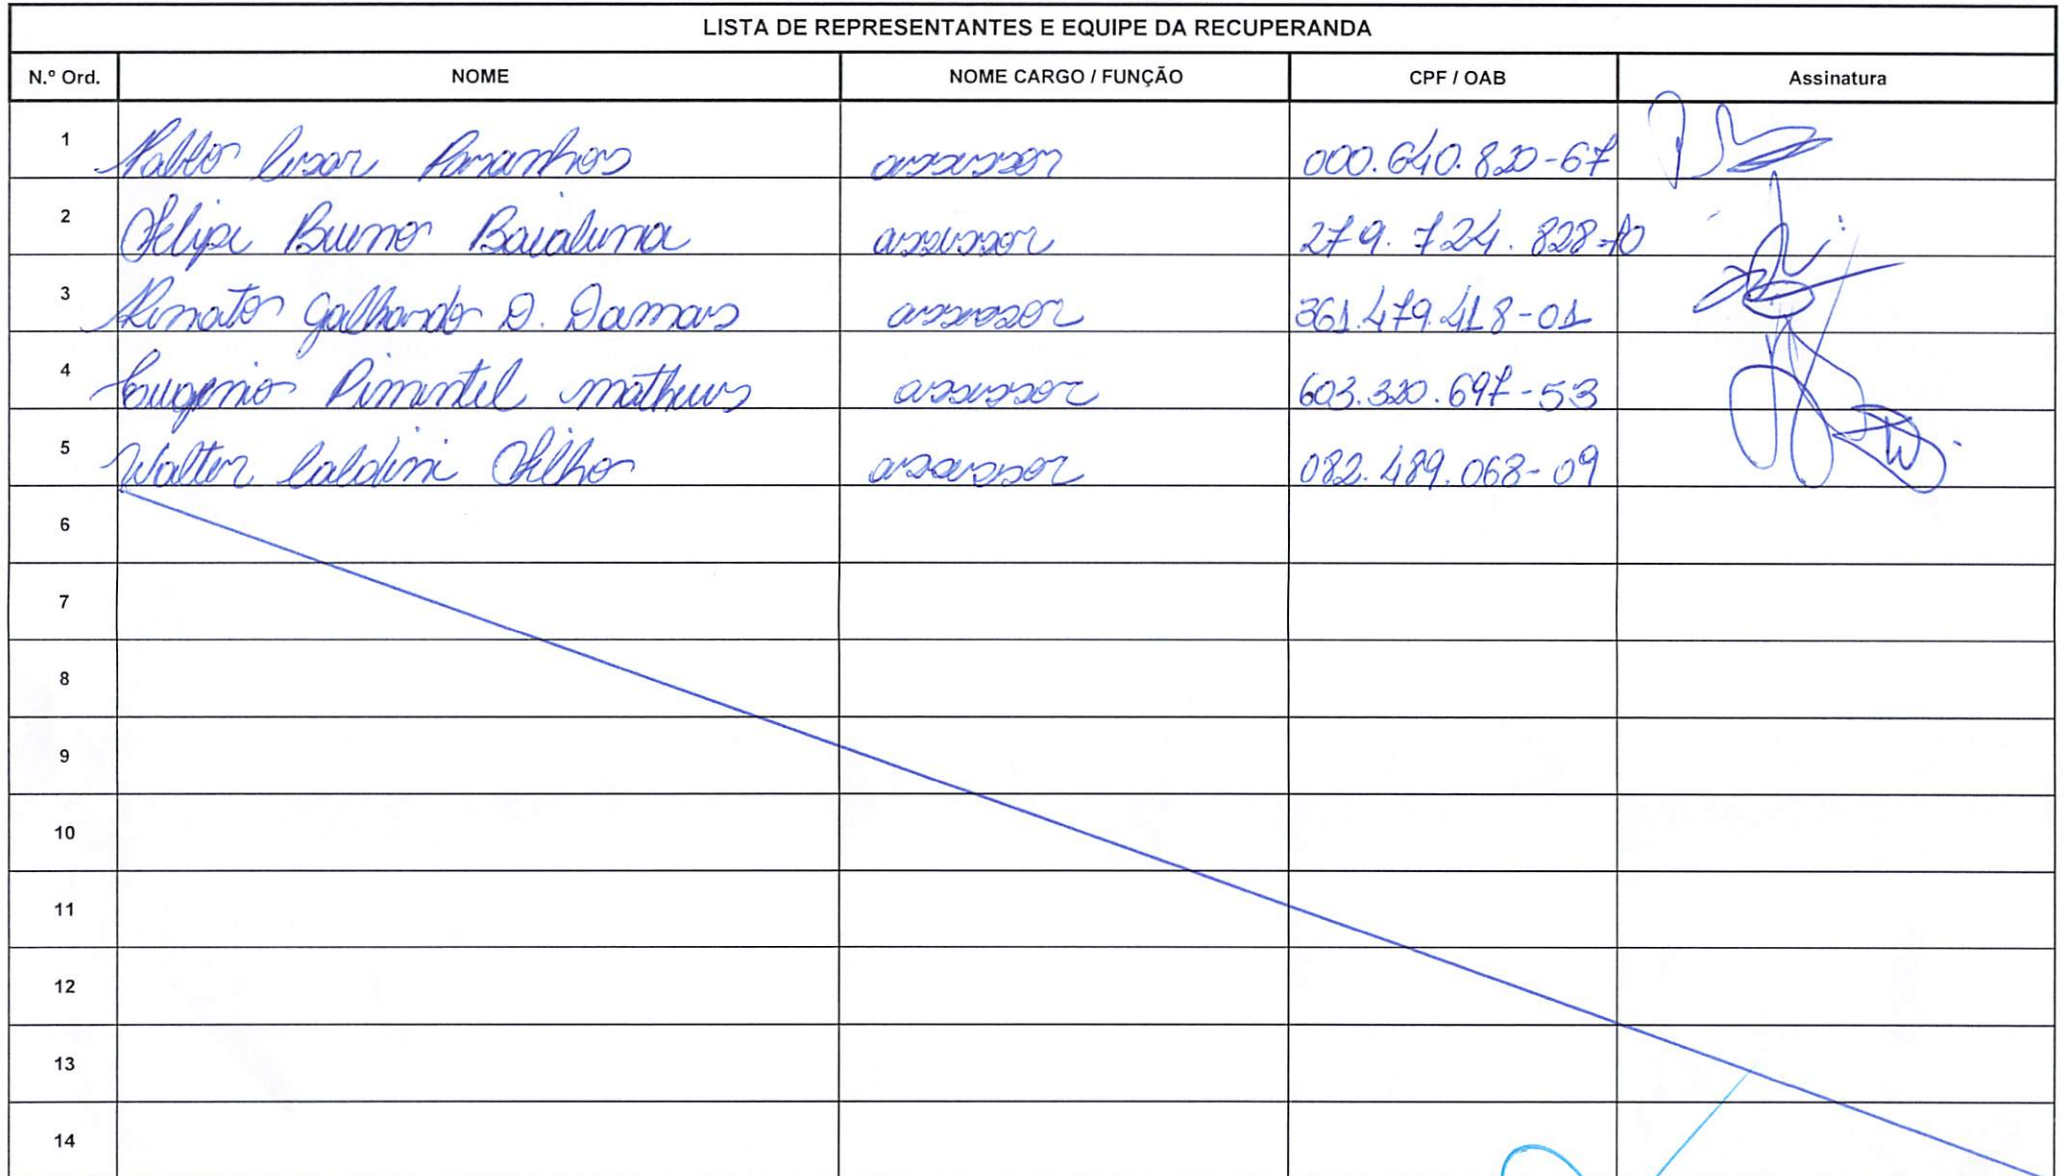 LISTA DE REPRESENTANTES E EQUIPE DA RECUPERANDA
N.º Ord. NOME NOME CARGO / FUNÇÃO CPF / OAB Assinatura
1 Pablo Cesar Paranhos assessor 000.640.820-67
2 Felipe Bueno assessor 279.724.828-70
3 Renato Galhardo D. Damas assessor 361.479.418-01
4 Eugenio Pimentel Matheus assessor 603.320.697-53
5 Walter Caldini Filho assessor 082.489.068-09
6
7
8
9
10
11
12
13
14